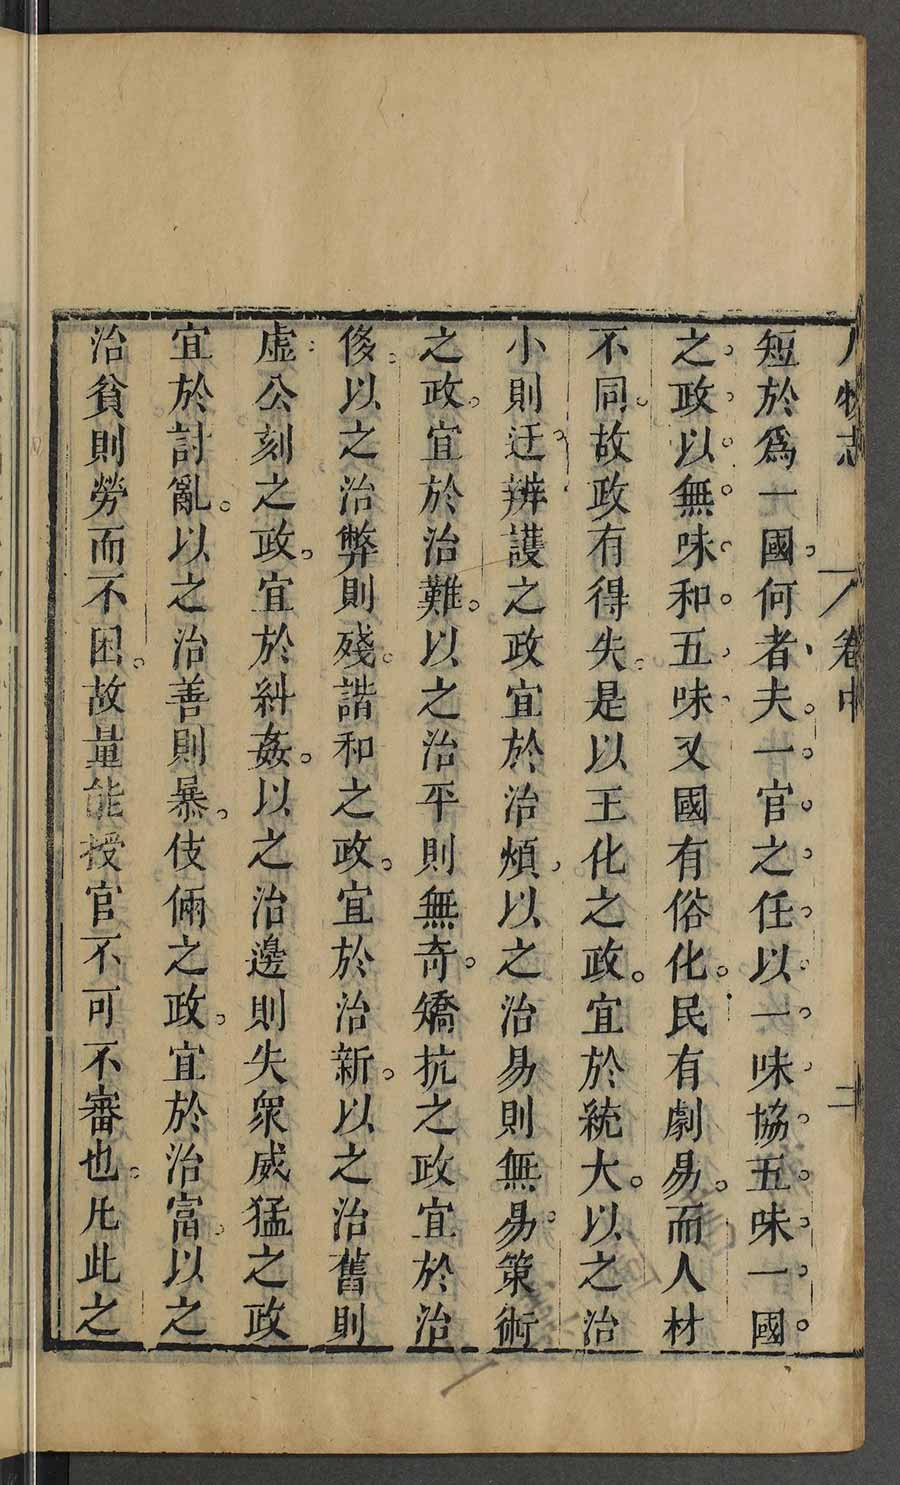 人物志 卷中 二
短於爲一國何者夫一官之任以一味協五味一國
之政以無味和五味又國有俗化民有劇易而人材
不同故政有得失是以王化之政宜於統大以之治
小則迂辨護之政宜於治煩以之治易則無易策術
之政宜於治難以之治平則無奇矯抗之政宜於治
侈以之治弊則殘諧和之政宜於治新以之治舊則
虛公刻之政宜於糾姦以之治邊則失衆威猛之政
宜於討亂以之治善則暴伎倆之政宜於治富以之
治貧則勞而不困故量能授官不可不審也凡此之